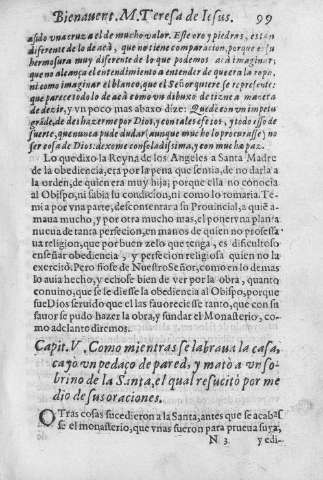 Bienauent. M. Teresa de Iesus. 99
asido vna cruz a el de mucho valor. Esse oro y piedras, es tan
diferente de lo de acà, que no tiene comparacion, porque es su
hermosura muy diferente de lo que podemos acà imaginar;
que no alcança el entendimiento a entender de que era la ropa,
ni como imaginar el blanco, que el Señor quiere se represente:
que parece todo lo de acà como vn dibuxo de tizne a manera
de dezir, y vn poco mas abaxo dize: Quedè con vn impetu
grãde, de deshazerme por Dios, y con tales efetos, y todo esso de
suerte, que nunca pude dudar (aunque mucho lo procurasse) no
ser cosa de Dios: dexome consoladissima, y con mucha paz.
Lo que dixo la Reyna de los Angeles a Santa Madre
de la obediencia, era por la pena que sentia, de no darla a
la orden, de quien era muy hija; porque ella no conocia
al Obispo, ni sabia su condicion, ni como lo tomaria. Te-
mia por vna parte, descontentar a su Prouincial, a quiẽ a-
maua mucho, y por otra mucho mas, el poner vna plãta
nueua de tanta perfecion, en manos de quien no professa
ua religion, que por buen zelo que tenga, es dificultoso
enseñar obediencia, y perfecion religiosa quien no la
exercitò. Pero fiose de Nuestro Señor, como en lo demas
lo auia hecho, y echose bien de ver por la obra, quanto
conuino, que se le diesse la obediencia al Obispo, porque
fue Dios seruido que el las fauoreciesse tanto, que con su
fauor se pudo hazer la obra, y fundar el Monasterio, co-
mo adelante diremos.
Capit. V. Como mientras se labraua la casa,
cayo vn pedaço de pared, y matò a vn so-
brino de la Santa, el qual resucitò por me
dio de sus oraciones.
OTras cosas sucedieron a la Santa, antes que se acabas
se el monasterio, que vnas fueron para prueua suya,
N 3. y edi-